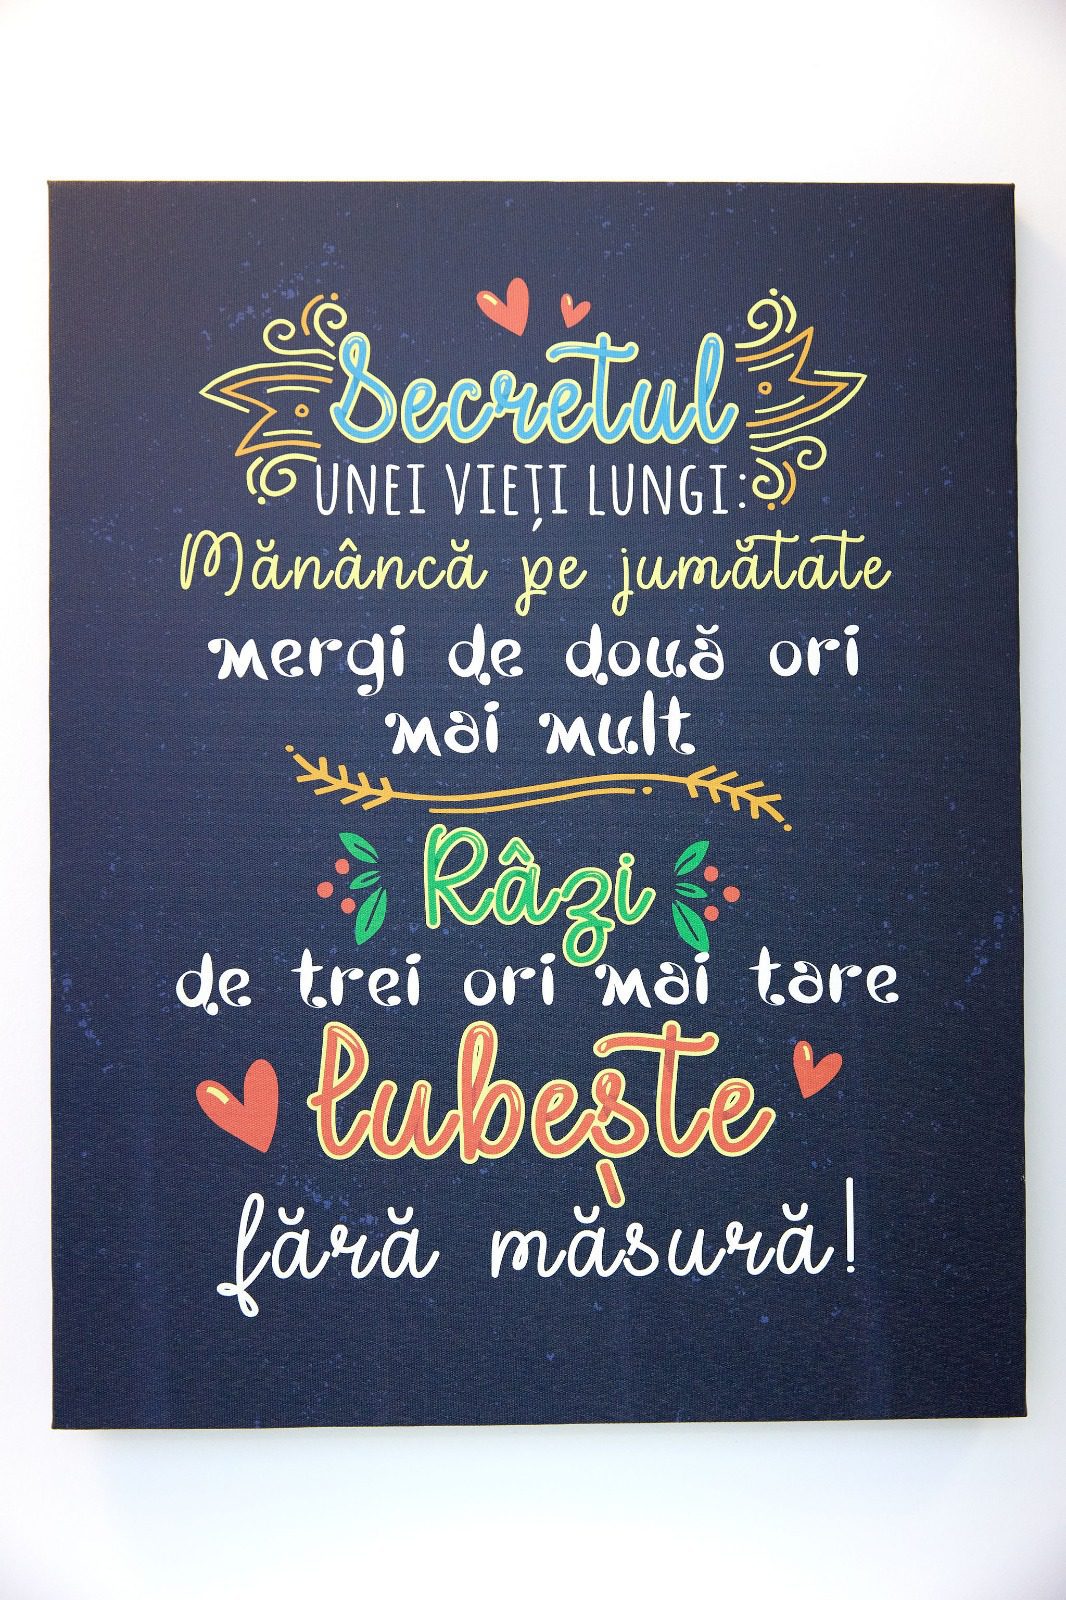 Secretul
UNEI VIEȚI LUNGI:
Mănâncă pe jumătate
mergi de două ori
mai mult
Râzi
de trei ori mai tare
Iubește
fără măsură!